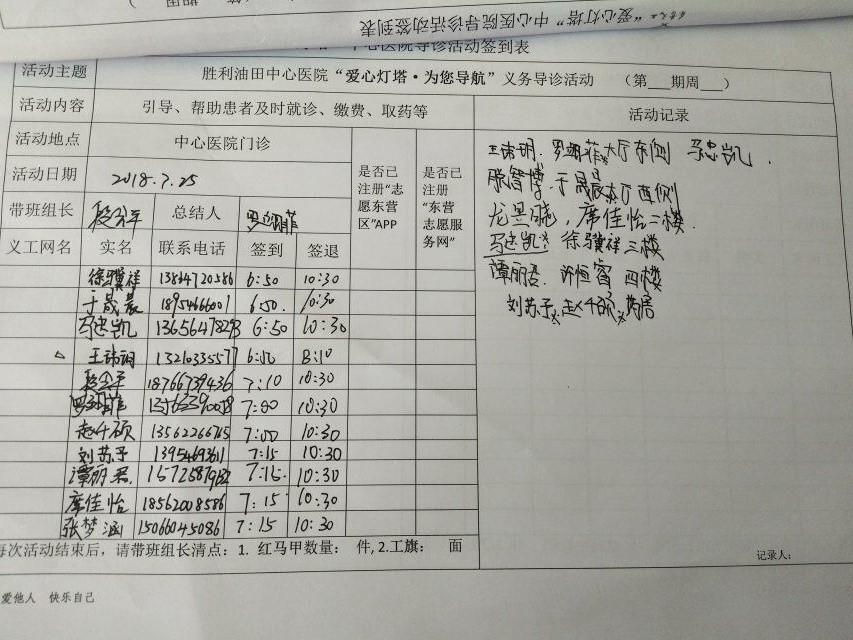 “爱心灯塔”中心医院导诊活动签到表
中心医院导诊活动签到表
活动主题 胜利油田中心医院“爱心灯塔·为您导航”义务导诊活动 （第___期周___）
活动内容 引导、帮助患者及时就诊、缴费、取药等 活动记录
活动地点 中心医院门诊 是否已注册“志愿东营区”APP 是否已注册“东营志愿服务网”
活动日期 2018.7.25
带班组长 总结人
义工网名 实名 联系电话 签到 签退
徐骥祥 13847720586 6:50 10:30
于晟晨 6:50 10:30
马忠凯 6:50 10:30
王玮玥 13210335577 8:10
18766739436 7:10 10:30
7:00 10:30
赵午硕 13562266765 7:00 10:30
刘芳予 7:15 10:30
谭丽君 7:15 10:30
席佳怡 18562008586 7:15 10:30
张梦涵 15066045086 7:15 10:30
王玮玥 大厅东侧 马忠凯
滕智博 于晟晨 大厅西侧
龙昱晓，席佳怡 二楼
马忠凯 徐骥祥 三楼
谭丽君 许恒睿 四楼
刘芳予 赵午硕
每次活动结束后，请带班组长清点：1. 红马甲数量： 件, 2.工旗： 面
记录人：
爱他人 快乐自己